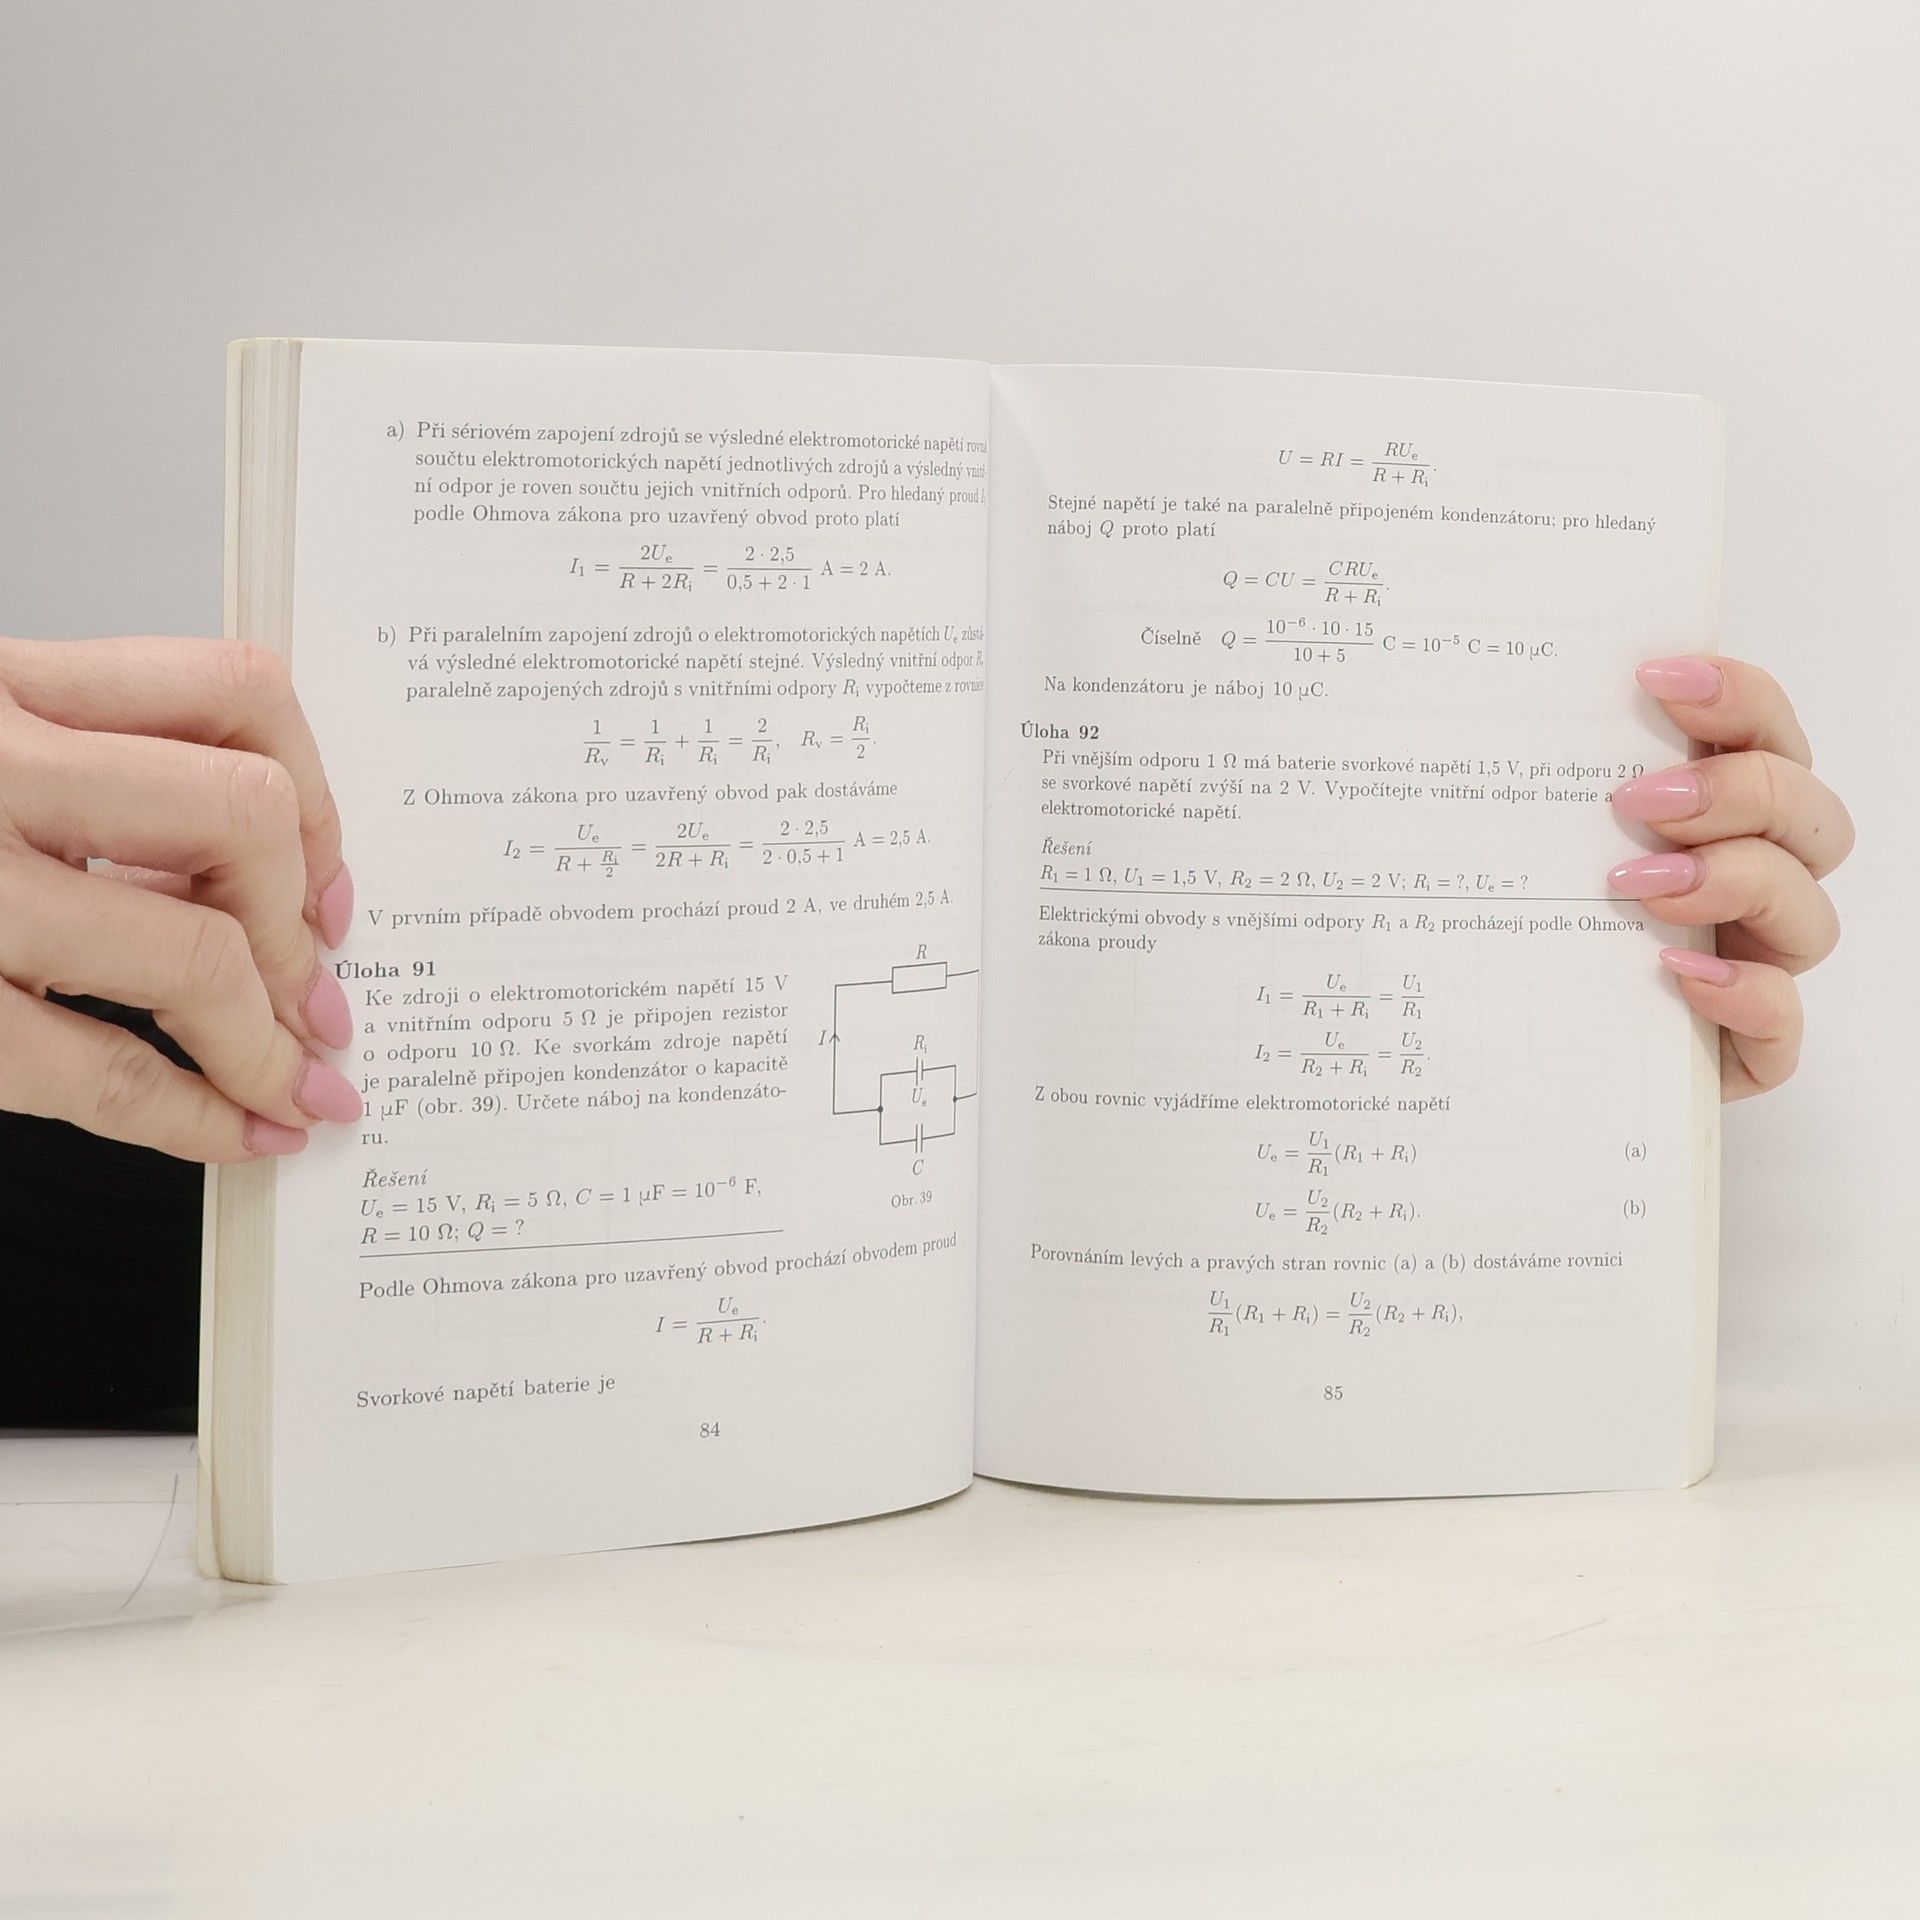 a) Při sériovém zapojení zdrojů se výsledné elektromotorické napětí rovná
součtu elektromotorických napětí jednotlivých zdrojů a výsledný vnitř-
ní odpor je roven součtu jejich vnitřních odporů. Pro hledaný proud
podle Ohmova zákona pro uzavřený obvod proto platí
I₁ = 2Uₑ / (R + 2Rᵢ) = (2 · 2,5) / (0,5 + 2 · 1) A = 2 A.
b) Při paralelním zapojení zdrojů o elektromotorických napětích Uₑ zůstá-
vá výsledné elektromotorické napětí stejné. Výsledný vnitřní odpor
paralelně zapojených zdrojů s vnitřními odpory Rᵢ vypočteme z rovnice
1/Rᵥ = 1/Rᵢ + 1/Rᵢ = 2/Rᵢ, Rᵥ = Rᵢ/2.
Z Ohmova zákona pro uzavřený obvod pak dostáváme
I₂ = Uₑ / (R + Rᵢ/2) = 2Uₑ / (2R + Rᵢ) = (2 · 2,5) / (2 · 0,5 + 1) A = 2,5 A.
V prvním případě obvodem prochází proud 2 A, ve druhém 2,5 A.
Úloha 91
Ke zdroji o elektromotorickém napětí 15 V
a vnitřním odporu 5 Ω je připojen rezistor
o odporu 10 Ω. Ke svorkám zdroje napětí
je paralelně připojen kondenzátor o kapacitě
1 μF (obr. 39). Určete náboj na kondenzáto-
ru.
R
I
Rᵢ
Uₑ
C
Obr. 39
Řešení
Uₑ = 15 V, Rᵢ = 5 Ω, C = 1 μF = 10⁻⁶ F,
R = 10 Ω; Q = ?
Podle Ohmova zákona pro uzavřený obvod prochází obvodem proud
I = Uₑ / (R + Rᵢ).
Svorkové napětí baterie je
84
U = RI = RUₑ / (R + Rᵢ).
Stejné napětí je také na paralelně připojeném kondenzátoru; pro hledaný
náboj Q proto platí
Q = CU = CRUₑ / (R + Rᵢ).
Číselně Q = (10⁻⁶ · 10 · 15) / (10 + 5) C = 10⁻⁵ C = 10 μC.
Na kondenzátoru je náboj 10 μC.
Úloha 92
Při vnějším odporu 1 Ω má baterie svorkové napětí 1,5 V, při odporu 2 Ω
se svorkové napětí zvýší na 2 V. Vypočítejte vnitřní odpor baterie a
elektromotorické napětí.
Řešení
R₁ = 1 Ω, U₁ = 1,5 V, R₂ = 2 Ω, U₂ = 2 V; Rᵢ = ?, Uₑ = ?
Elektrickými obvody s vnějšími odpory R₁ a R₂ procházejí podle Ohmova
zákona proudy
I₁ = Uₑ / (R₁ + Rᵢ) = U₁/R₁
I₂ = Uₑ / (R₂ + Rᵢ) = U₂/R₂.
Z obou rovnic vyjádříme elektromotorické napětí
Uₑ = U₁/R₁ (R₁ + Rᵢ) (a)
Uₑ = U₂/R₂ (R₂ + Rᵢ). (b)
Porovnáním levých a pravých stran rovnic (a) a (b) dostáváme rovnici
U₁/R₁ (R₁ + Rᵢ) = U₂/R₂ (R₂ + Rᵢ),
85